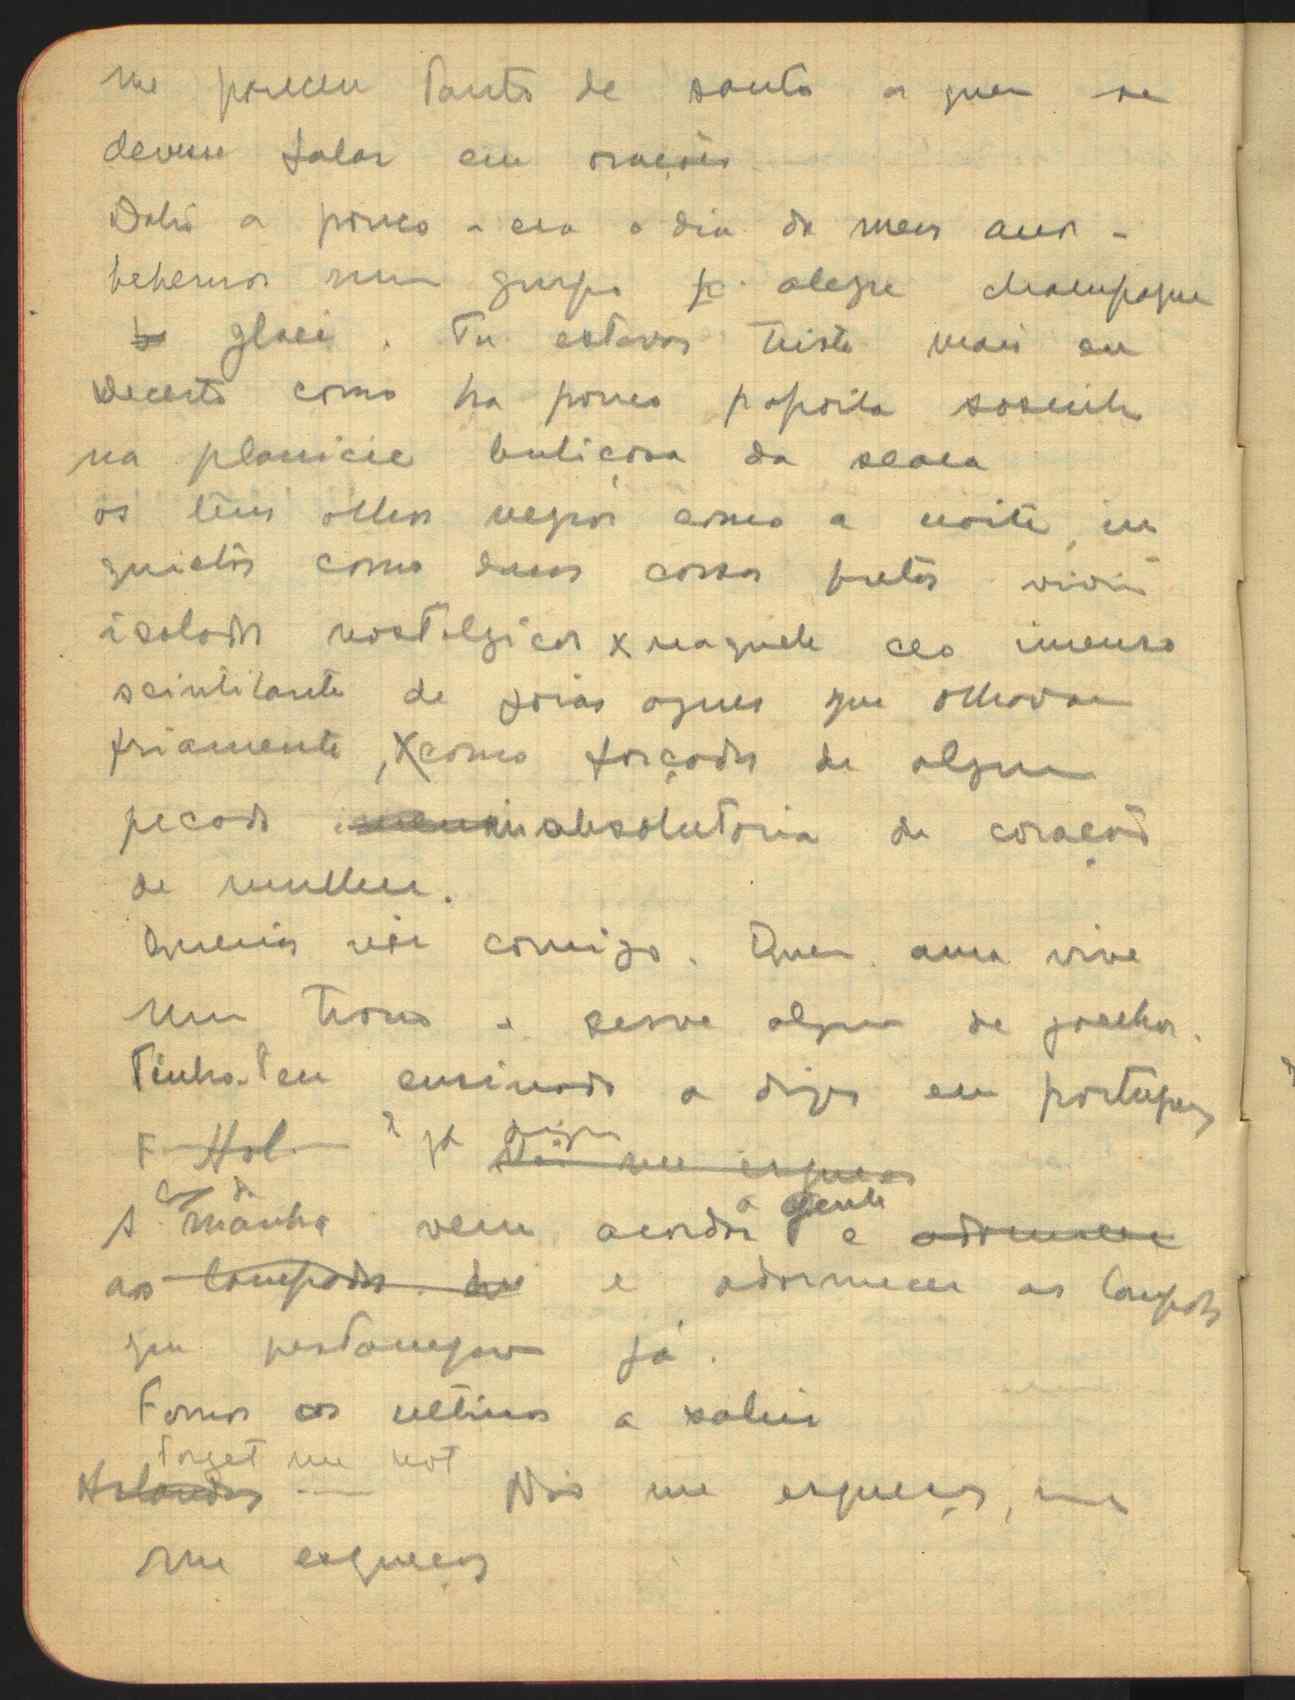 me pareceu tanto de santo a quem se
devesse falar em orações
Dahi a pouco - era o dia de meus anos -
bebemos num grupo alegre champagne
glacé. Tu estavas triste mais eu
Decerto como ha pouco papoila sosinha
na planicie buliçosa da seara
os teus olhos negros como a noite, in
quietos como duas corsas pretas viviam
isolados nostalgicos x naquele ceo imenso
scintilante de joias que olhavam
friamente, x como forçados de algum
pecado inabsolutoria de coração
de mulher.
Querias vir comigo. Quem ama vive
num trono e serve alguem de joelhos.
Tinha-t'eu ensinado a dizer em portuguez
F. Hol. já Não me esqueças
A manhã vem acordar a gente e adormecer
as lampadas e adormecer as lampadas
que pestanejavam já.
Fomos os ultimos a sahir
forget me not
Holandes — Não me esqueças, não
me esqueças